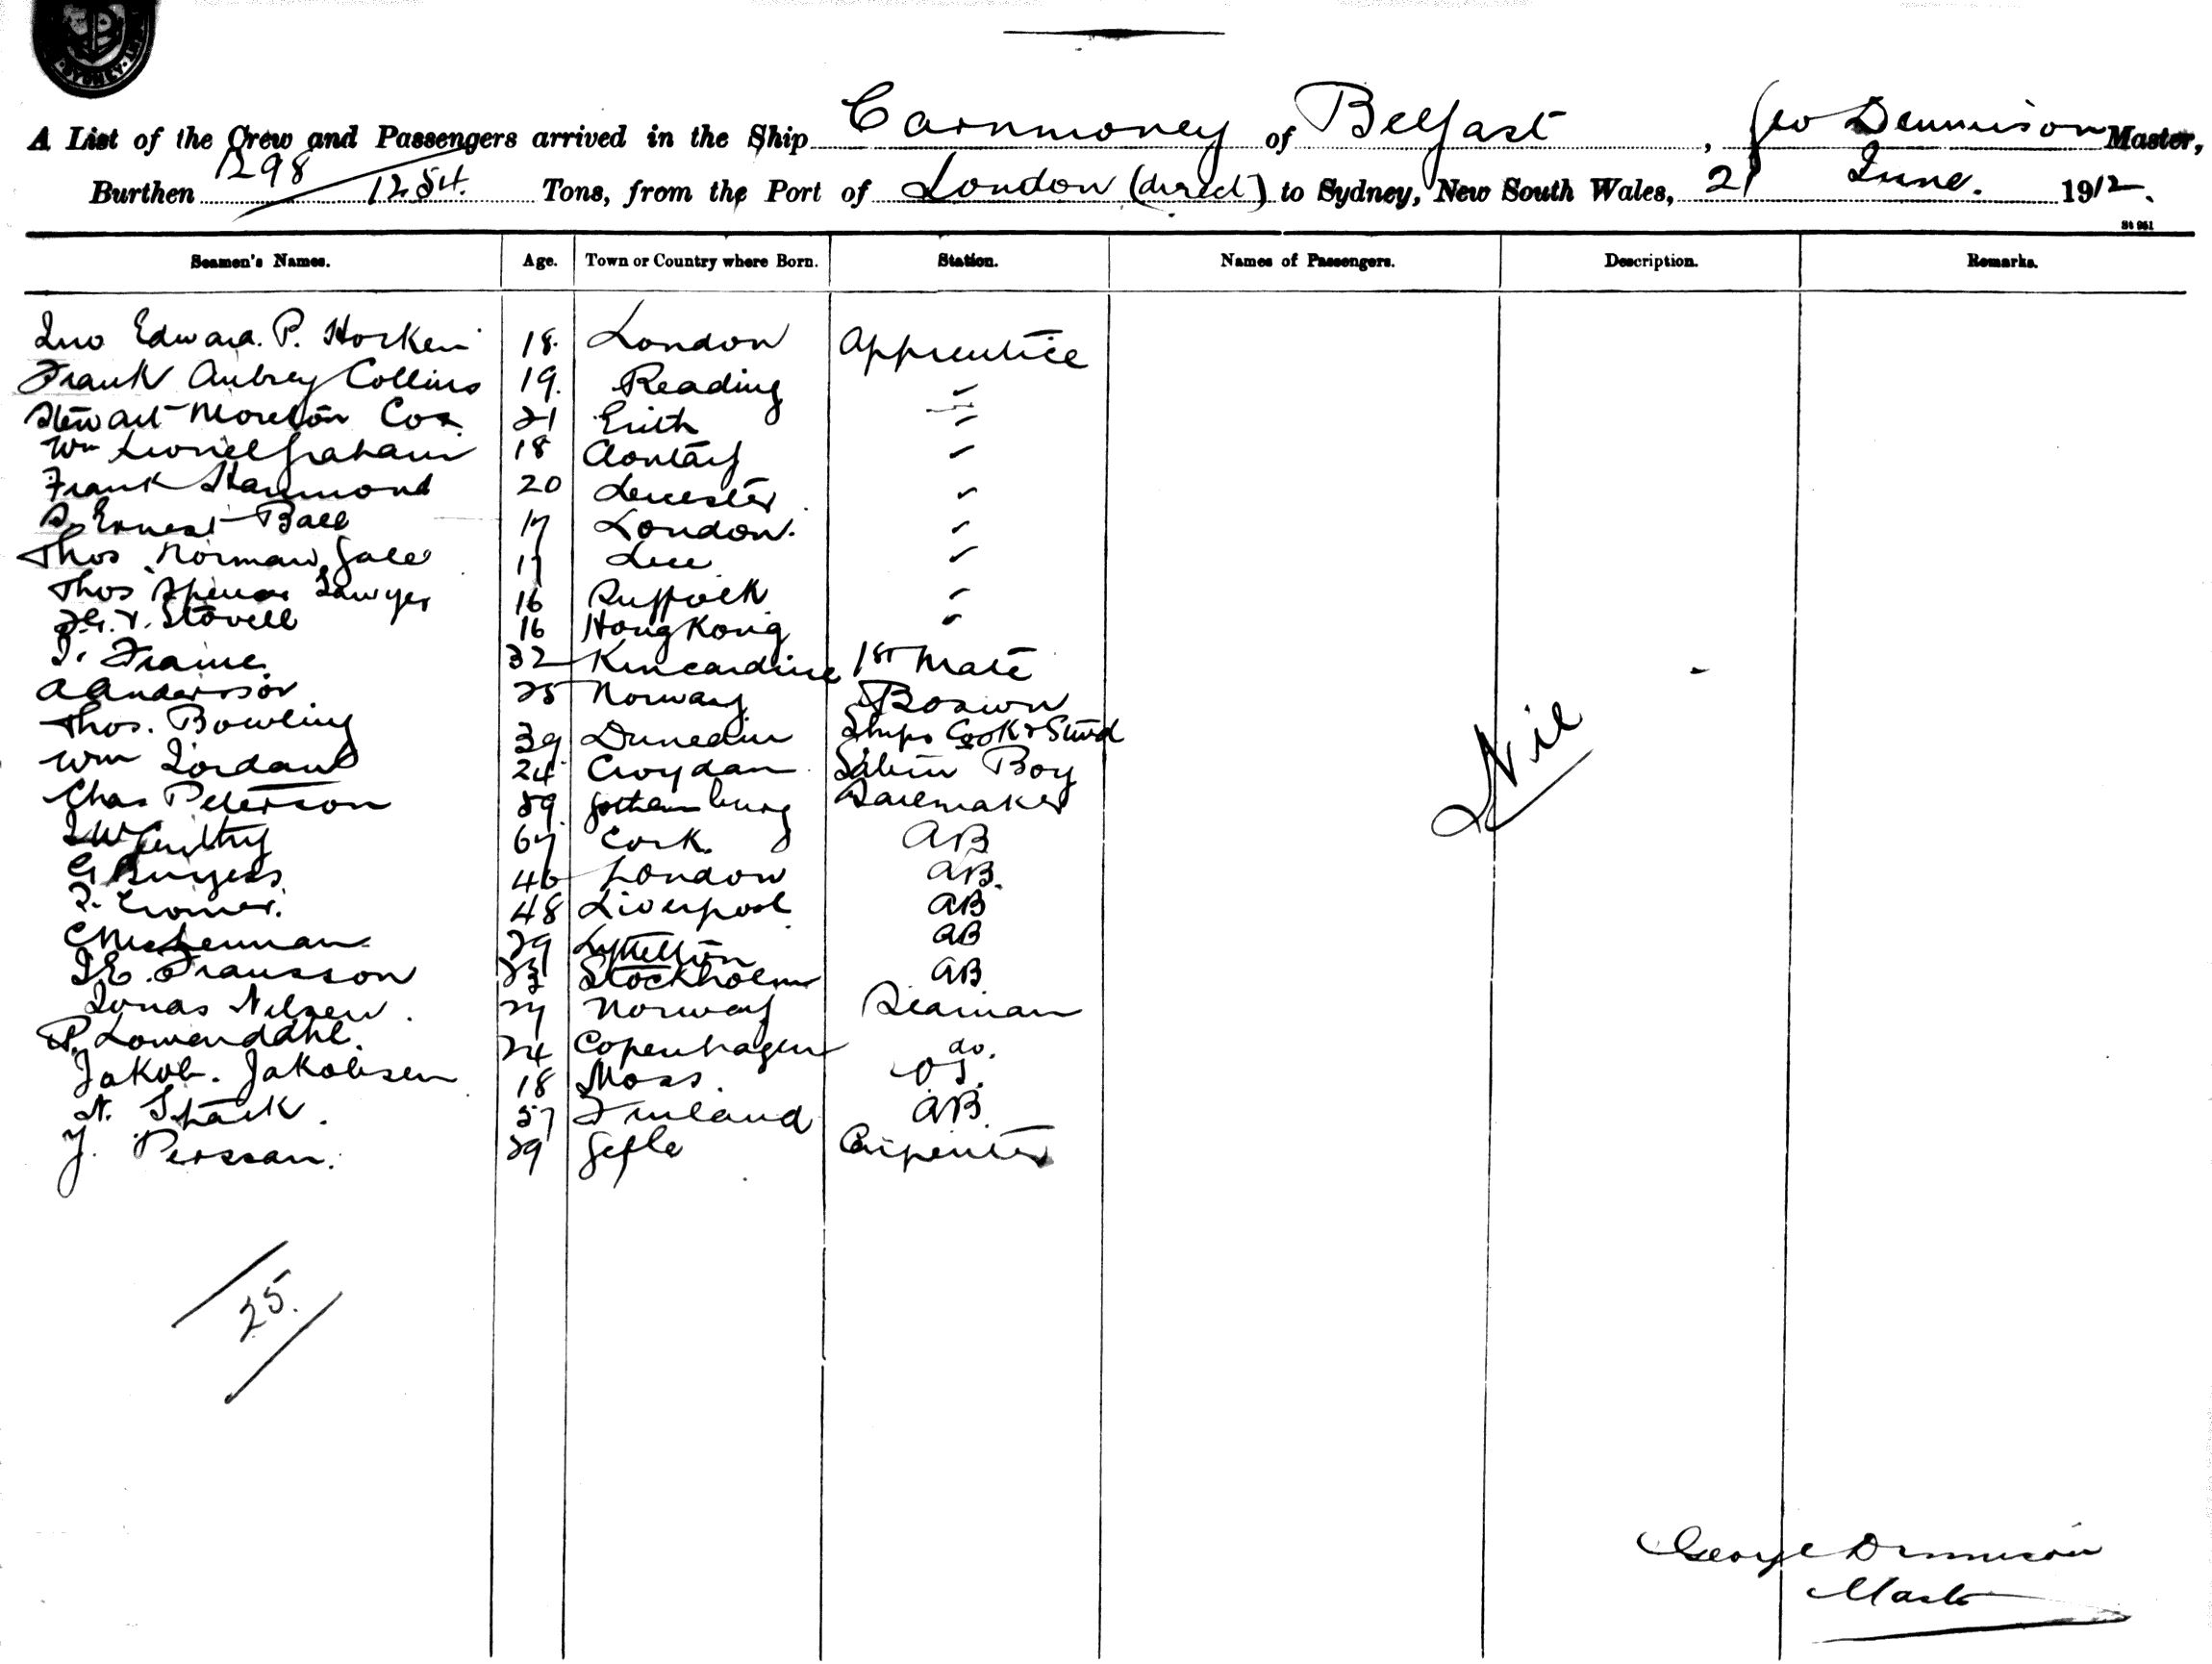 SYDNEY
A List of the Crew and Passengers arrived in the Ship Carnmoney of Belfast, Geo Dennison Master,
Burthen 1298 / 1254. Tons, from the Port of London (direct) to Sydney, New South Wales, 21 June. 1912.
St 961
Seamen's Names. Age. Town or Country where Born. Station. Names of Passengers. Description. Remarks.
Jno Edward. P. Hosken 18. London Apprentice
Frank Aubrey Collins 19. Reading "
Stewart Moreton Cox 21 Erith "
Wm Lionel Graham 18 Clontarf "
Frank Hammond 20 Leicester "
Ernest Ball 17 London. "
Thos Norman Gale 17 Lee "
Thos Spencer Sawyer 16 Suffolk "
Stovell 16 Hong Kong "
Frame 32 Kincardine 1st Mate
A Anderson 25 Norway Boswn
Thos. Bowling 39 Dunedin Ships Cook & Stwd
Wm Jordan 24 Croydan Cabin Boy
Chas Peterson 39 Gothenburg Sailmaker
67 Cork. AB
G Burgess 46 London AB.
48 Liverpool AB
29 Lyttelton AB
J.E. Fransson 23 Stockholm AB
Jonas Nilsen. 27 Norway Seaman
P. Lowendahl. 24 Copenhagen do.
Jakob. Jakobsen 18 Moss. OS.
N. 57 Finland AB.
J. Perssan. 29 Gefle Carpenter
Nil
25.
George Dennison
Master